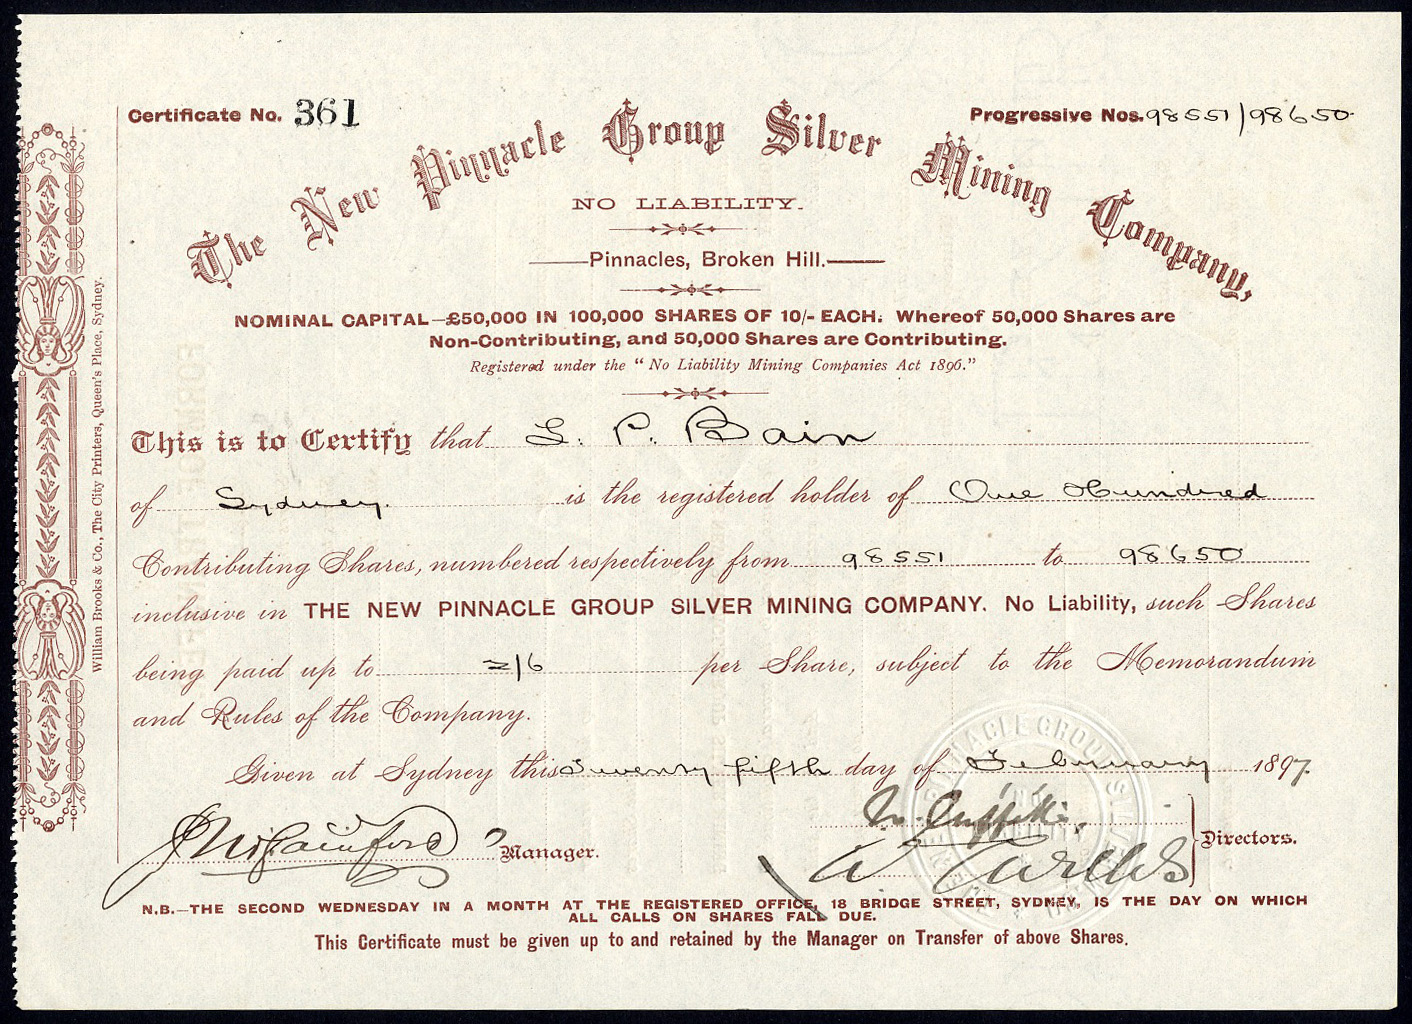 Certificate No. 361
Progressive Nos. 98551/98650
The New Pinnacle Group Silver Mining Company,
NO LIABILITY.
Pinnacles, Broken Hill.
NOMINAL CAPITAL—£50,000 IN 100,000 SHARES OF 10/- EACH. Whereof 50,000 Shares are
Non-Contributing, and 50,000 Shares are Contributing.
Registered under the "No Liability Mining Companies Act 1896."
This is to Certify that L. P. Bain
of Sydney. is the registered holder of One Hundred
Contributing Shares, numbered respectively from 98551 to 98650
inclusive in THE NEW PINNACLE GROUP SILVER MINING COMPANY. No Liability, such Shares
being paid up to 2/6 per Share, subject to the Memorandum
and Rules of the Company.
Given at Sydney this Twenty fifth day of February 1897.
Manager.
Directors.
N.B.—THE SECOND WEDNESDAY IN A MONTH AT THE REGISTERED OFFICE, 18 BRIDGE STREET, SYDNEY, IS THE DAY ON WHICH
ALL CALLS ON SHARES FALL DUE.
This Certificate must be given up to and retained by the Manager on Transfer of above Shares.
William Brooks & Co., The City Printers, Queen's Place, Sydney.